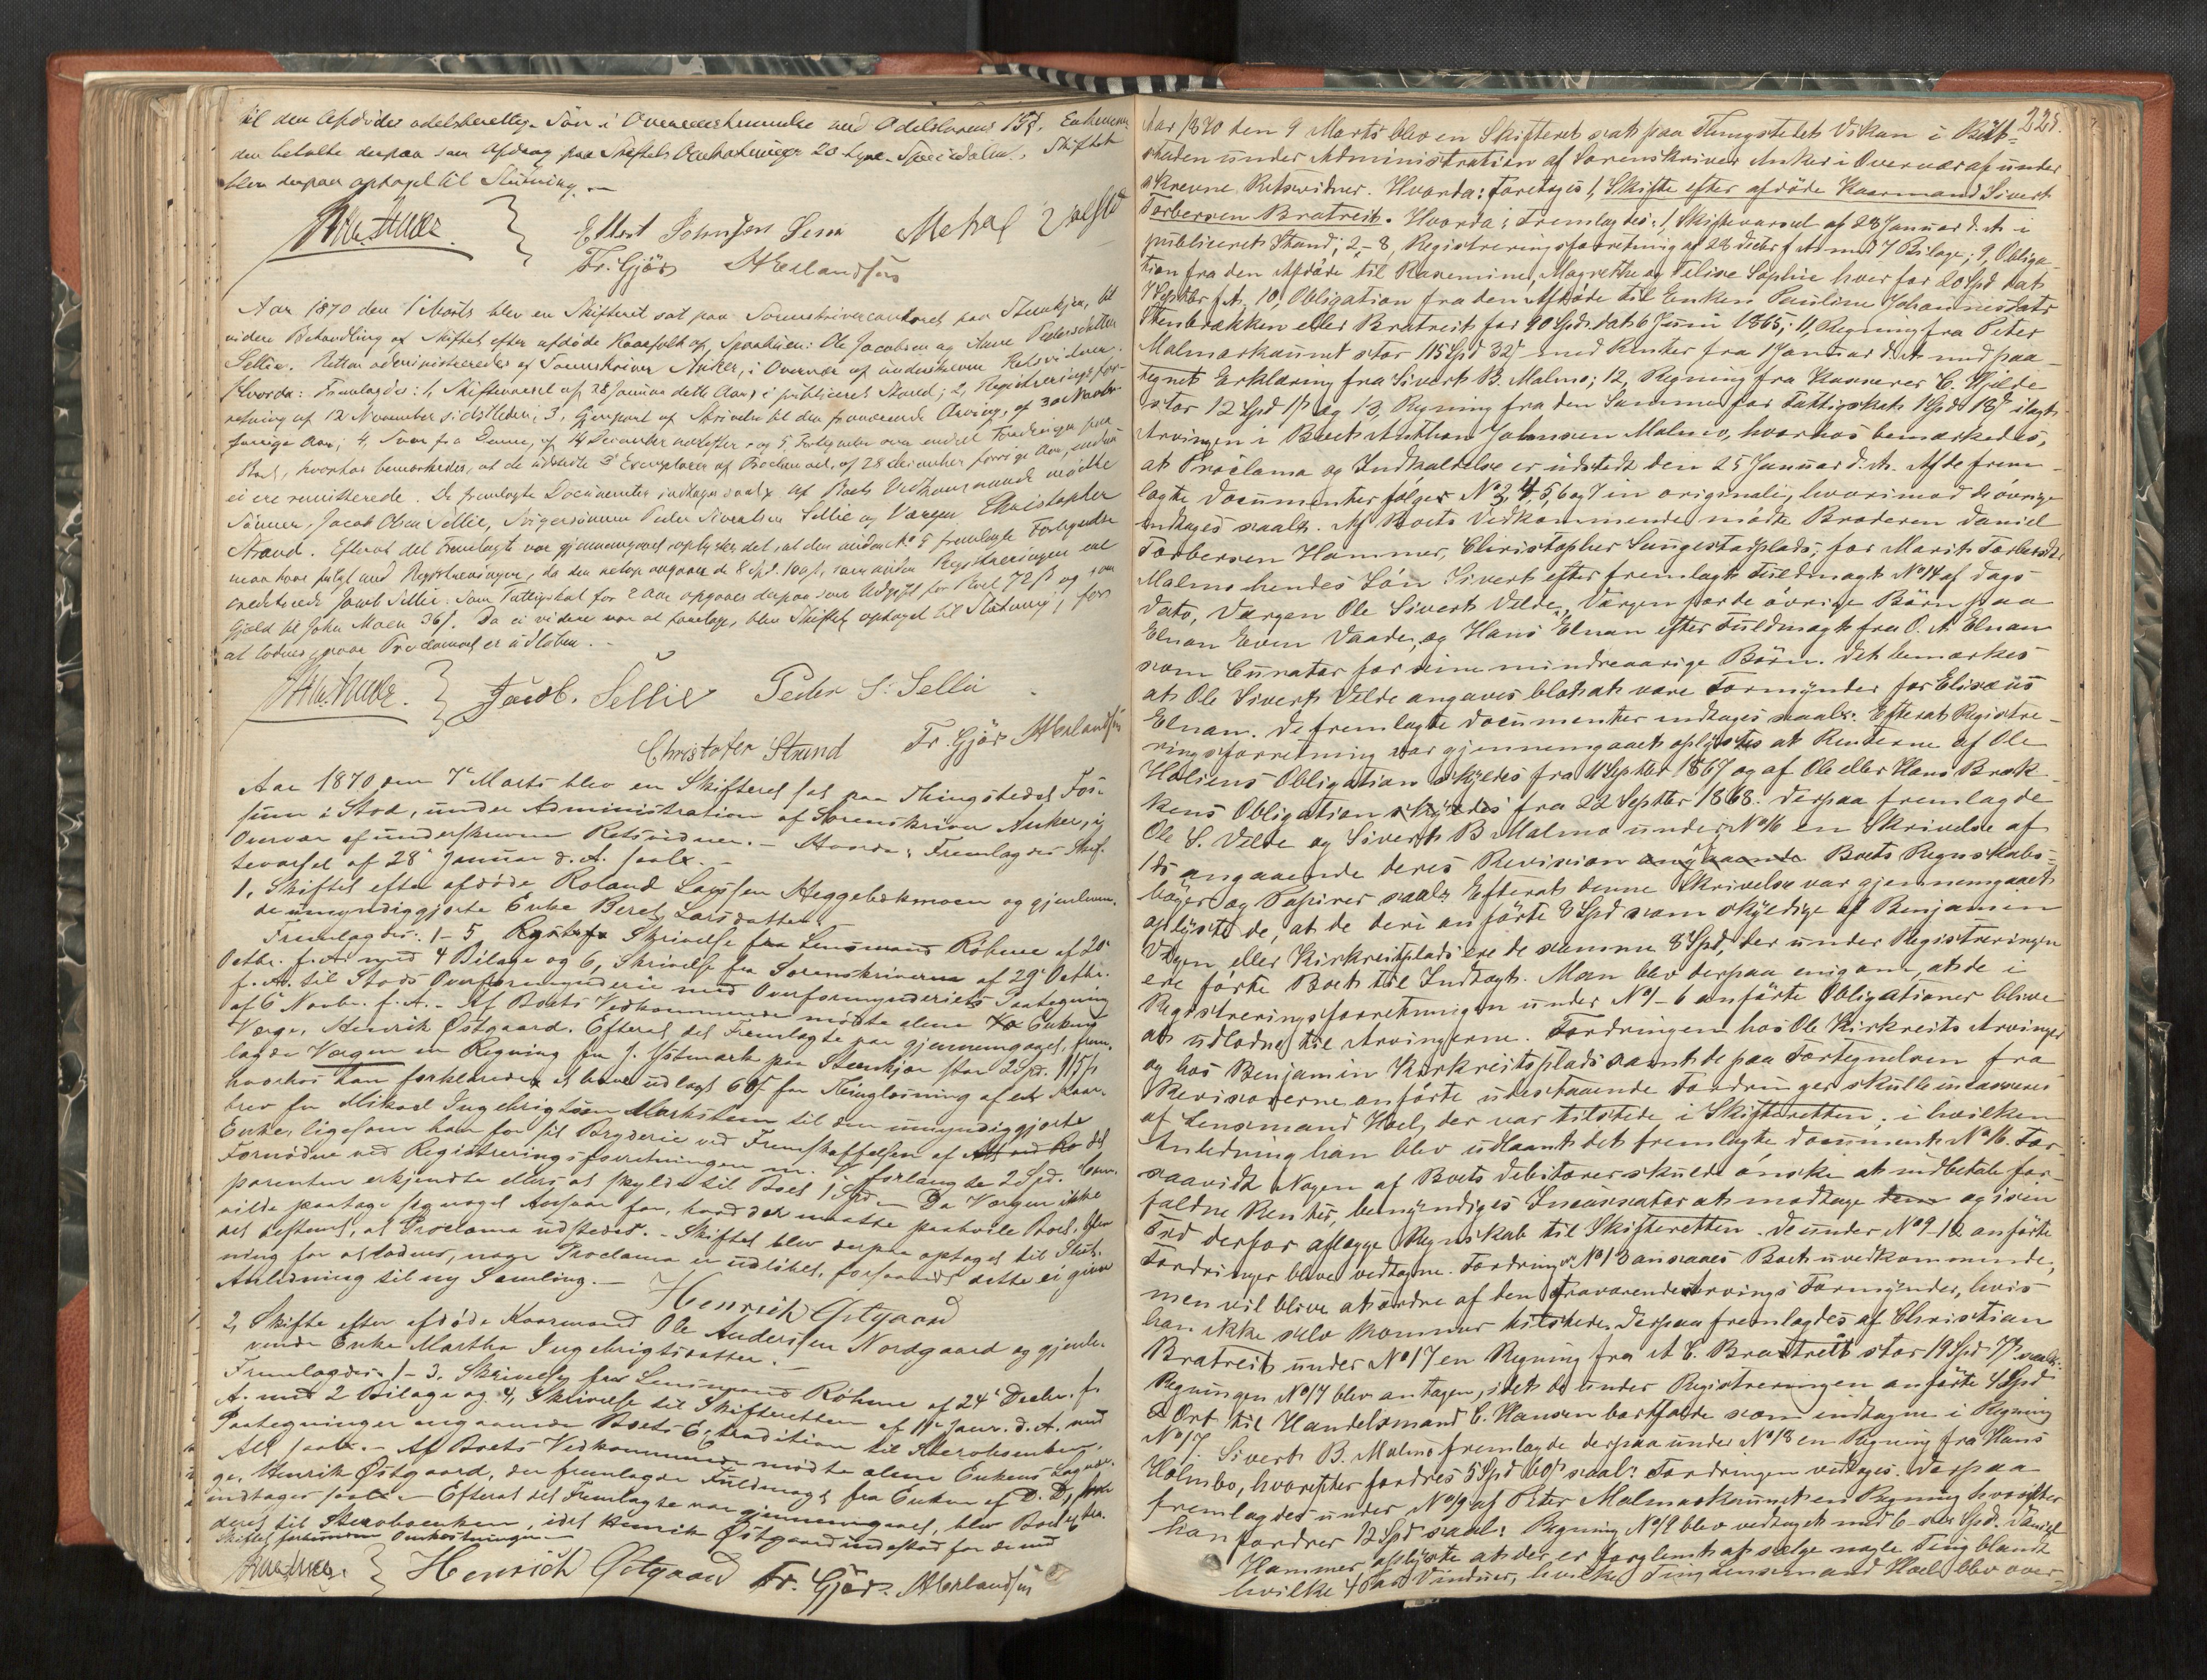 til den Afdødes odelsberettig. Søn i Overensstemmelse med Odelslovens
den betalte derpaa som Afdrag paa Skiftets Omkostninger 20 tyve Speciedaler. Skiftet
blev derpaa optaget til Slutning.
Ellert Johnsen
Fr. Gjör HErlandsen
Aar 1870 den 1 Marts blev en Skifteret sat paa Sorenskrivercontoret paa Stenkjær, til
videre Behandling af Skiftet efter afdøde Kaarfolk af Ole Jacobsen og Anne Pedersdatter
Sellie. Retten administreredes af Sorenskriver Anker, i Overvær af underskrevne Retsvidner.
Hvorda: Fremlagdes: 1, Skiftevarsel af 28 Januar dette Aar i publiceret Stand; 2, Registreringsfor-
retning af 12 November sidstleden, 3, Gjenpart af Skrivelse til den fraværende Arving, af 30 Novbr
forrige Aar; 4, Svar fra Denne, af 14 December næstefter og 5 Fortegnelse over endeel Fordringer paa
Boet, hvorhos bemærkedes, at de udstedte 3 Exemplarer af af 28 December forrige Aar, endnu
ei ere remitterede. De fremlagte Documenter indtages saal. Af Boets Vedkommende mødte
Sønnen, Jacob Olsen Sellie, Svigersønnen Peder Sivertsen Sellie og Værgen Christopher
Strand. Efterat det Fremlagte var gjennemgaaet oplystes det, at den under No 5 fremlagte Fortegnelse
maa have fulgt med Registreringen, da den netop angaaer de 8 Spd. som under Registreringen ere
crediterede Jacob Sellie. Som Fattigskat for 2 Aar opgaves derpaa som Udgift for Boet 72 ß og som
Gjæld til John Moen 36 ß. Da ei videre var at foretage, blev Skiftet optaget til Slutning, for
at loddes, naar Proclamaet er udløben.
Jacob. Sellie Peder S. Sellie
Christofer Strand Fr. Gjör HErlandsen
Aar 1870 den 7de Marts blev en Skifteret sat paa Thingstedet Fos-
sum i Stod, under Administration af Sorenskriver Anker, i
Overvær af underskrevne Retsvidner. - Hvorda: Fremlagdes Skif-
tevarsel af 28 Januar d. A. saal. -
1, Skiftet efter afdøde Roland Larssen Heggebækmoen og gjenleven-
de umyndiggjorte Enke Beret Larsdatter. -
Fremlagdes: 1-5 Skrivelse fra Lensmand Röhme af 20
Octbr. f. A. med 4 Bilage og 6, Skrivelse fra Sorenskriveren af 29 Octbr.
f. A. til Stods Overformynderie med Overformynderiets Paategning
af 6 Novbr. f. A. - Af Boets Vedkommende mödte alene Enkens
Værge, Henrik Østgaard. Efterat det Fremlagte var gjennemgaaet, frem-
lagde Værgen en Regning fra J. Hstmark paa Stenkjær stor 2 Spd. 115 ß
hvorhos han forklarede at have udlagt 60 ß for Thinglæsning af et Kaar-
brev fra Mikael Ingebrigtsen Markstem til den umyndiggjorte
Enke, ligesom han for sit Bryderie ved Fremskaffelsen af det
Fornödne ved Registreringsforretningen m. V. forlangte 2 Spd. Com-
parenten erkjendte ellers at skylde til Boet 1 Spd. - Da Værgen ikke
vilde paatage sig noget Ansvar for, hvad der maatte paahvile Boet, blev
det bestemt, at Proclama udstedes. - Skiftet blev derpaa optaget til Slut-
ning for at loddes, naar Proclama er udlöbet, forsaavidt dette ei giver
Anledning til ny Samling. -
Henrich Östgaard
2, Skifte efter afdöde Kaarmand Ole Andersen Nordgaard og gjenle-
vende Enke Martha Ingebrigtsdatter. -
Fremlagdes: 1-3. Skrivelse fra Lensmand Röhme af 24 Decbr. f.
A. med 2 Bilage og 4, Skrivelse til Skifteretten af 11 Janr. d. A. med
Paategninger angaaende Boets Extradition til Sterboenken,
Alt saal. - Af Boets Vedkommende mödte alene Enkens Laugvær-
ge, Henrik Østgaard, der fremlagde Fuldmagt fra Enken af D. D.,
indtages saal. - Efterat det Fremlagte var gjennemgaaet, blev Boet extra-
deret til Sterboenken, idet Henrik Østgaard indestod for de ved
Skiftet forbundne Omkostninger.
Henrich Östgaard Fr. Gjör. HErlandsen
225.
Aar 1870 den 9 Marts blev en Skifteret sat paa Thingstedet Vikan i Beit-
staden under Administration af Sorenskriver Anker i Overvær af under
skrevne Retsvidner. Hvorda: Foretoges 1, Skifte efter afdöde Kaarmand Sivert
Torbersen Bratreit. Hvorda: Fremlagdes: 1, Skiftevarsel af 28 Januar d. A. i
publiceret Stand; 2-8, Registreringsforretning af 28 f. A. med 7 Bilage; 9, Obliga-
tion fra den Afdöde til Karenmine, Magrethe og Feline Sophie hver for 20 Spd dat.
7 Septbr f. A. 10, Obligation fra den Afdöde til Enken Pauline Johannesdatr
Stenbrækken eller Bratreit for 90 Spd. dat. 6 Juni 1865; 11, Regning fra Peter
Malmoskaunet stor 115 Spd 32 ß med Renter fra 1 Januar d. A. med paa-
tegnet Erklæring fra Sivert B. Malmo; 12, Regning fra Kasserer C. Hjelde
stor 12 Spd 1 ß og 13, Regning fra den Samme for Fattigskat 1 Spd 18 ß ilagt
Arvingen i Boet Anthon Johnsen Malmo, hvorhos bemærkedes,
at Proclama og Indkaldelse er udstedt den 25 Januar d. A. Af de frem-
lagte Documenter fölger No 3, 4, 5, 6 og 7 in originali, hvorimod de övrige
indtages saal. Af Boets Vedkommende mödte Broderen Daniel
Torbersen Hammer, Christopher Sungestadplads; for Marit Torbersdtr
Malmo hendes Sön Sivert efter fremlagt Fuldmagt No 14 af Dags
Dato, Værgen Ole Sivert Velde, Værgen for de övrige Börn paa
Elnan Even Vaade, og Hans Elnan efter Fuldmagt fra O. A. Elnan
som Curator for sine mindreaarige Börn. Det bemærkes
at Ole Sivert Velde angaves blot at være Formynder for Elisæus
Elnan. De fremlagte Documenter indtages saal. Efterat Registre-
ringsforretning var gjennemgaaet oplystes at Renterne af Ole
Holiens Obligation skyldes fra 11 Septbr 1867 og af Ole eller Hans Bræk-
kens Obligation skyldes fra 22 Septbr 1868. Derpaa fremlagde
Ole S. Velde og Sivert B. Malmo under No 16 en Skrivelse af
1 ds angaaende deres Revision Boets Regnskabs-
böger og Papirer saal. Efterat denne Skrivelse var gjennemgaaet
oplyste de, at de deri anförte 8 Spd som skyldige af Benjamin
Vegen eller Kirkreitplads ere de samme 8 Spd, der under Registreringen
ere förte Boet til Indtægt. Man blev derpaa enig om, at de i
Registreringsforretningen under No 1-6 anförte Obligationer blive
at udlodne til Arvingerne. Fordringen hos Ole Kirkreits Arvinger
og hos Benjamin Kirkreitsplads samt de paa Fortegnelsen fra
Revisorerne anförte udestaaende Fordringer skulle incasseres
af Lensmand Hoel, der var tilstede i Skifteretten, i hvilken
Anledning han blev udlaant det fremlagte Document No 16. For-
saavidt Nogen af Boets Debitorer skulde önske at indbetale for-
faldne Renter, bemyndiges Incassator at modtage og i sin
Tid derfor aflægge Regnskab til Skifteretten. De under No 9-12 anförte
Fordringer bleve vedtagne. Fordring No 13 ansaaes Boet uvedkommende,
men vil blive at ordne af den fraværende Arvings Formynder, hvis
han ikke selv kommer tilstede. Derpaa fremlagdes af Christian
Bratreit under No 17 en Regning fra A C. Bratreit stor 19 Spd 7 ß saal.
Regningen No 17 blev antagen, idet de under Registreringen anförte 4 Spd
2 Ort til Handelsmand C. Hansen bortfalde som indtagne i Regning
No 17. Sivert B. Malmo fremlagde derpaa under No 18 en Regning fra Hans
Holmbo, hvorefter fordres 5 Spd 60 ß saal. Fordringen vedtages. Derpaa
fremlagdes under No 19 af Peter Malmoskaunet en Regning hvorefter
han fordrer 12 Spd saal. Regning No 19 blev vedtaget med 6 sex Spd. Daniel
Hammer oplyste at der er forglemt at sælge nogle Ting blandt
hvilke 4 Fag Vinduer, hvilke Ting Lensmand Hoel blev over-